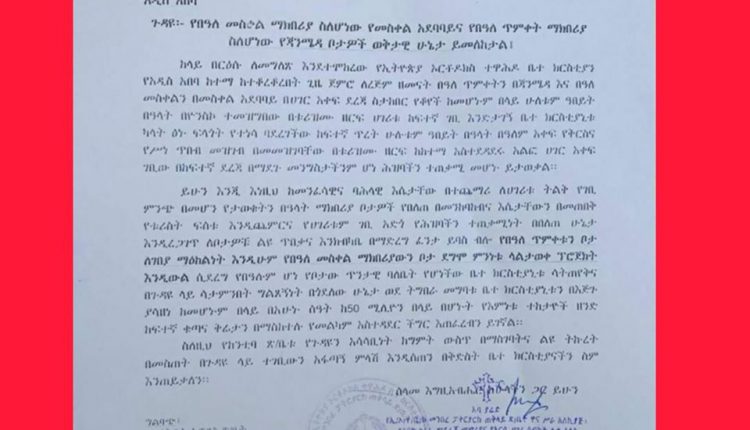 አዲስ አበባ
ጉዳዩ፡- የበዓለ መስቀል ማክበሪያ ስለሆነው የመስቀል አደባባይና የበዓለ ጥምቀት ማክበሪያ
ስለሆነው የጃንሜዳ ቦታዎች ወቅታዊ ሁኔታ ይመለከታል፤
ከላይ በርዕሱ ለመግለጽ እንደተሞከረው የኢትዮጵያ ኦርቶዶክስ ተዋሕዶ ቤተ ክርስቲያን
የአዲስ አበባ ከተማ ከተቆረቆረበት ጊዜ ጀምሮ ለረጅም ዘመናት በዓለ ጥምቀትን በጃንሜዳ እና በዓለ
መስቀልን በመስቀል አደባባይ በሀገር አቀፍ ደረጃ ስታከብር የቆየች ከመሆኑም በላይ ሁለቱም ዓበይት
በዓላት በዩንስኮ ተመዝግበው በቱሪዝሙ ዘርፍ ሀገሪቱ ከፍተኛ ገቢ እንድታገኝ ቤተ ክርስቲያኒቱ
ካላት ፍላጎት የተነሳ ባደረገችው ከፍተኛ ጥረት ሁለቱም ዓበይት በዓላት በዓለም አቀፍ የቅርስና
የሥነ ጥበብ መዝገብ በመመዝገባቸው በቱሪዝሙ ዘርፍ ከከተማ አስተዳደሩ አልፎ ሀገር አቀፍ
ገቢው በከፍተኛ ደረጃ በማደጉ መንግስታችንም ሆነ ሕዝባችን ተጠቃሚ መሆኑ ይታወቃል።
ይሁን እንጂ እነዚህ ከመንፈሳዊና ባሕላዊ እሴታቸው በተጨማሪ ለሀገሪቱ ትልቅ የገቢ
ምንጭ በመሆን የታወቁትን በዓላት ማክበሪያ ቦታዎች የበለጠ በመንከባከብና እሴታቸውን በመጠበቅ
የቱሪስት ፍሰቱ እንዲጨምርና የሀገሪቱም ገቢ አድጎ የሕዝባችን ተጠቃሚነት በበለጠ ሁኔታ
እንዲረጋገጥ ለቦታዎቹ ልዩ ጥበቃና እንክብካቤ በማድረግ ፈንታ ይባስ ብሎ የበዓለ ጥምቀቱን ቦታ
ለገበያ ማዕከልነት እንዲሁም የበዓለ መስቀል ማክበሪያውን ቦታ ደግሞ ምንነቱ ላልታወቀ ፕሮጀክት
እንዲውል ሲደረግ የበዓሉም ሆነ የቦታው ጥንታዊ ባለቤት የሆነችው ቤተ ክርስቲያኒቱ ሳትጠየቅና
በጉዳዩ ላይ ሳታምንበት ግልጸኝነት በጎደለው ሁኔታ ወደ ትግበራ መግባቱ ቤተ ክርስቲያኒቱን በእጅጉ
ያሳዘነ ከመሆኑም በላይ በአሁኑ ሰዓት ከ50 ሚሊዮን በላይ በሆኑት የእምነቱ ተከታዮች ዘንድ
ከፍተኛ ቁጣና ቅሬታን በማስከተሉ የመልካም አስተዳደር ችግር እጠረብን ይገኛል።
ስለዚህ የከንቲባ ጽ/ቤቱ የጉዳዩን አሳሳቢነት ከግምት ውስጥ በማስገባትና ልዩ ትኩረት
በመስጠት በጉዳዩ ላይ ተገቢውን አፋጣኝ ምላሽ እንዲሰጠን በቅድስት ቤተ ክርስቲያናችን ስም
እንጠይታለን።
ሰላመ እግዚአብሔር ከሁላችን ጋር ይሁን
አባ ያሬድ
ግልባጭ፡